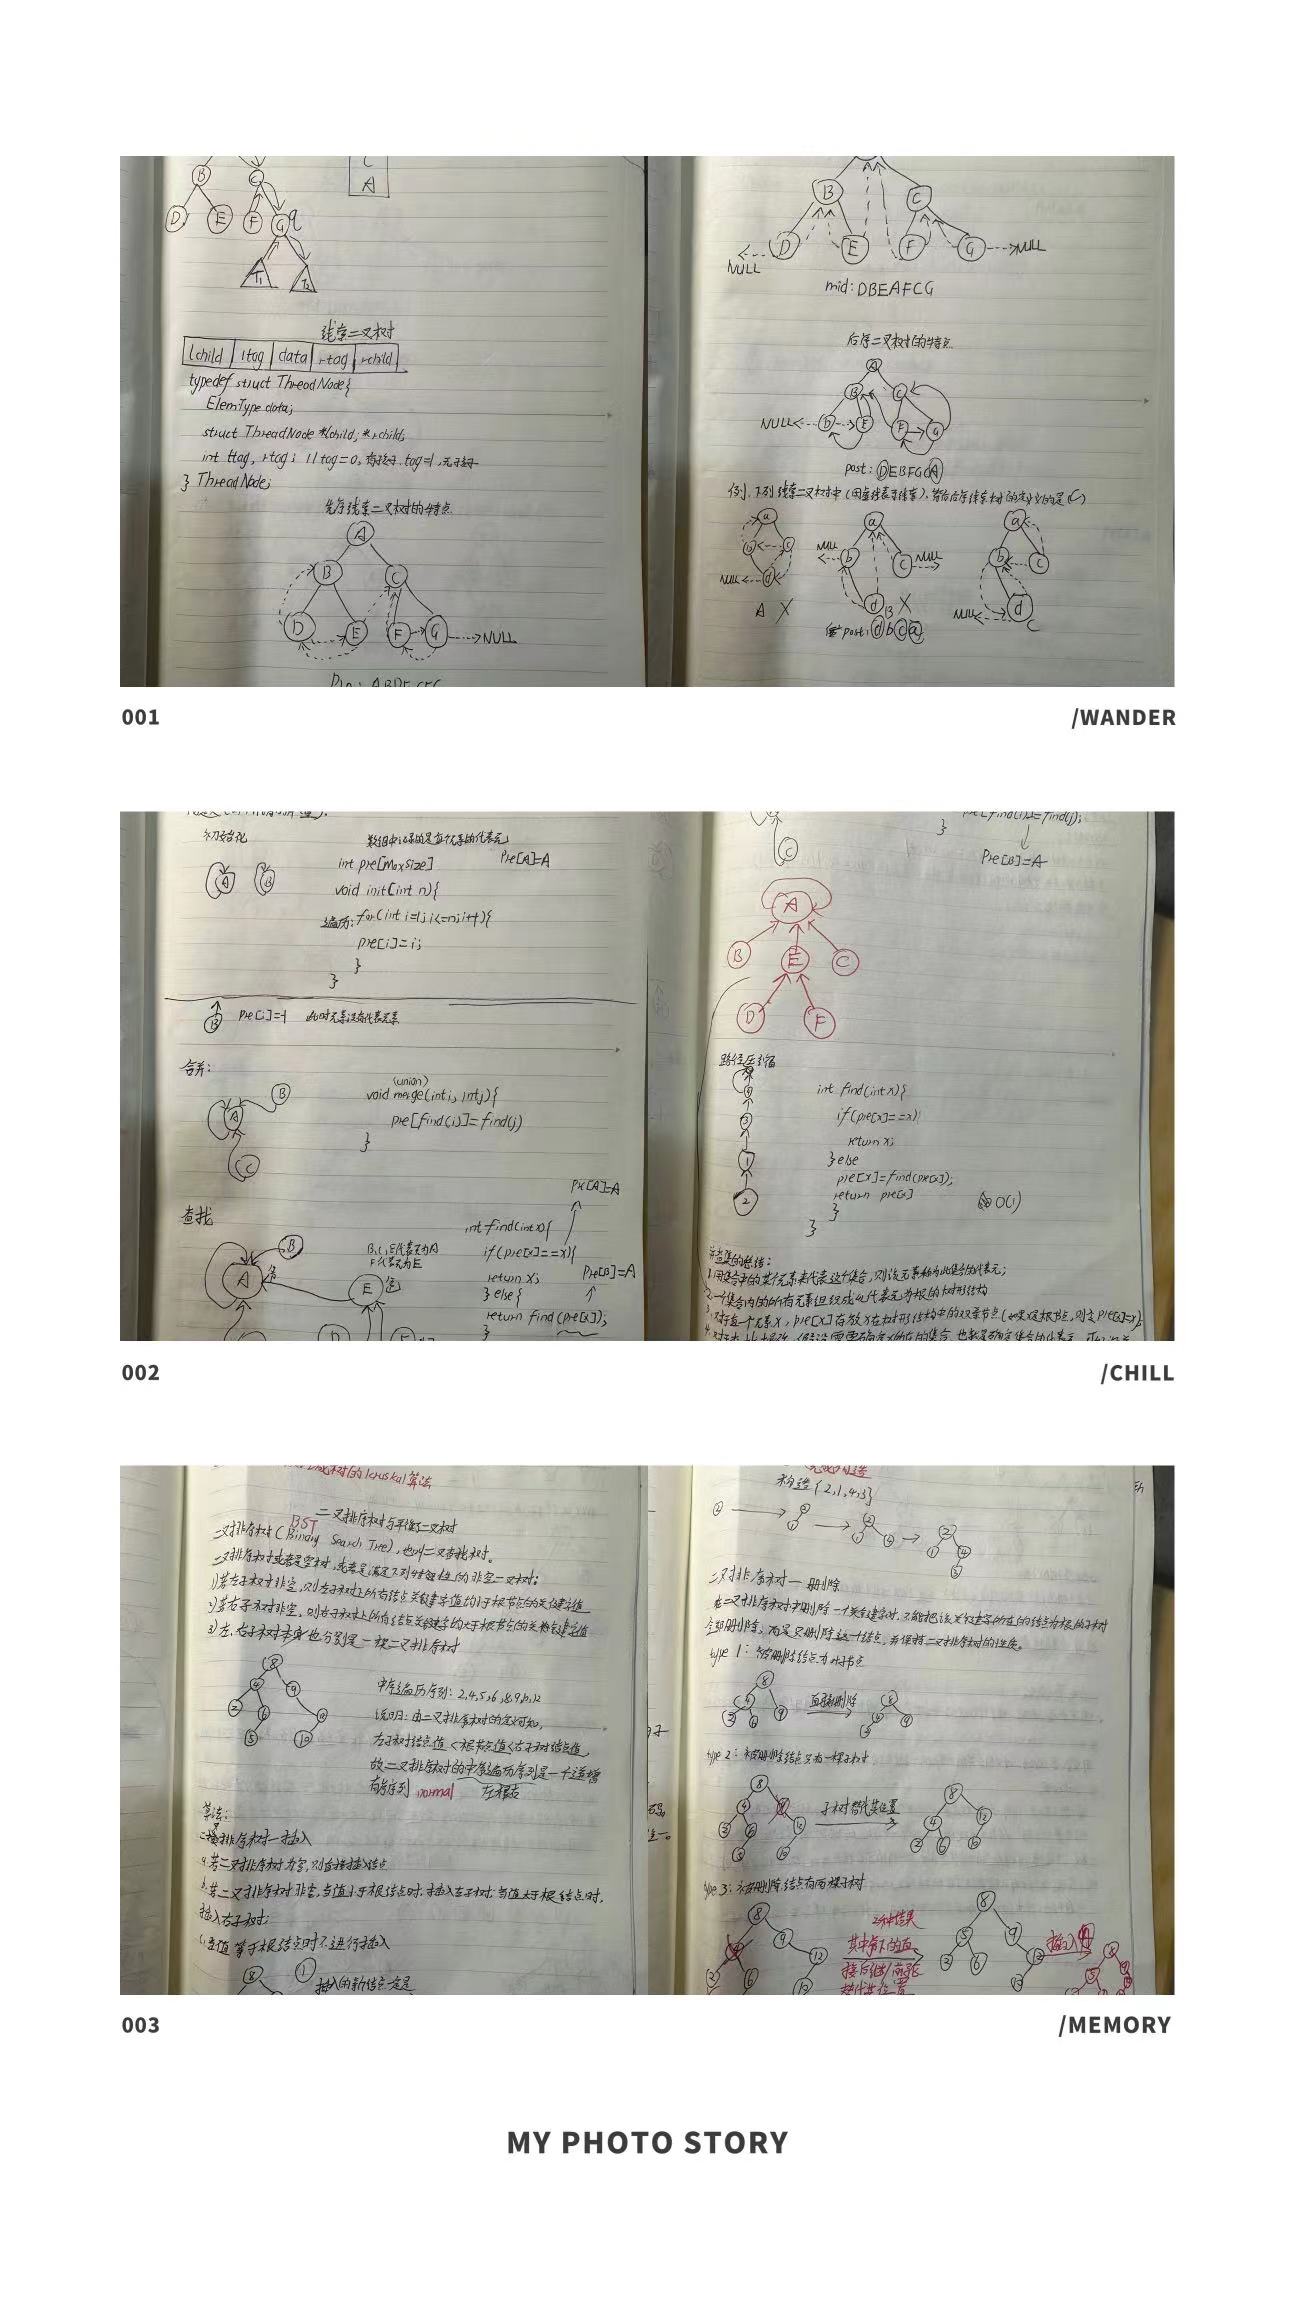 B C
A
D E F G q
T1 T2
线索二叉树
lchild ltag data rtag rchild
typedef struct ThreadNode{
ElemType data;
struct ThreadNode *lchild, *rchild;
int ltag, rtag; //tag=0,有孩子.tag=1,无孩子
} ThreadNode;
先序线索二叉树的特点
A
B C
D E F G NULL
B C
D E F G NULL
NULL
mid: DBEAFCG
后序二叉树的特点
A
B C
NULL D E F G
post: DEBFGCA
例.下列线索二叉树中(用虚线表示线索),符合后序线索树的定义的是(C)
a a a
b c NULL b c NULL b c
NULL d d NULL d
A X B X C
post: d b c a
001
/WANDER
初始化
数组中记录的是每个元素的代表元
A B
int pre[MaxSize] Pre[A]=A
void init(int n){
遍历: for(int i=1;i<=n;i++){
pre[i]=i;
}
}
B pre[i]=-1 此时元素没有代表元素
合并:
(union)
void merge(int i, int j){
pre[find(i)]=find(j)
}
A B
C
查找
Pre[A]=A
int find(int x){
B,C,E代表元为A
F代表元为E
if(pre[x]==x){
return x; Pre[B]=A
} else {
return find(pre[x]);
}
A B
E
D F
C
pre[find(i)]=find(j);
}
Pre[B]=A
A
B E C
D F
路径压缩
3
1
2
int find(int x){
if(pre[x]==x)
return x;
} else
pre[x]=find(pre[x]);
return pre[x] O(1)
}
}
并查集的总结:
1.用集合中的某个元素来代表这个集合,则该元素称为此集合的代表元;
2.一个集合内的所有元素组织成以代表元为根的树形结构
3.对于每一个元素x, pre[x]存放x在树形结构中的双亲节点(如果x是根节点,则令pre[x]=x);
002
/CHILL
成树的kruskal算法
二叉排序树与平衡二叉树
BST
二叉排序树(Binary Search Tree),也叫二叉查找树。
二叉排序树或者是空树,或者是满足下列特性的非空二叉树:
1)若左子树非空,则左子树上所有结点关键字值均小于根节点的关键字值
2)若右子树非空,则右子树上的所有结点关键字均大于根节点的关键字值
3)左,右子树本身也分别是一棵二叉排序树
8
4 9
2 6 12
5 10
中序遍历序列: 2,4,5,6,8,9,10,12
说明:由二叉排序树的定义可知,
左子树结点值<根节点值<右子树结点值
故二叉排序树的中序遍历序列是一个递增
有序序列 normal 左根右
算法:
二叉排序树—插入
a.若二叉排序树为空,则直接插入结点
b.若二叉排序树非空,当值小于根结点时,插入左子树;当值大于根结点时,
插入右子树;
c.当值等于根结点时不进行插入
8 ① 插入的新结点一定是
构造{2,1,4,3}
2 2 2 2
1 1 4 1 4
3
二叉排序树—删除
在二叉排序树中删除一个关键字时,不能把该关键字所在的结点为根的子树
全部删除,而是只删除这一个结点,并保持二叉排序树的性质。
type 1: 被删除结点为叶节点
8
4 9
2 6
直接删除
type 2: 被删除结点只有一棵子树
子树替代其位置
8
4 12
2 6 10
type 3: 被删除结点有两棵子树
8
9
2 6 12
2种结果
其中第下的直
接后继/前驱
替代其位置
8
5 9
2 6 12
10
插入
003
/MEMORY
MY PHOTO STORY